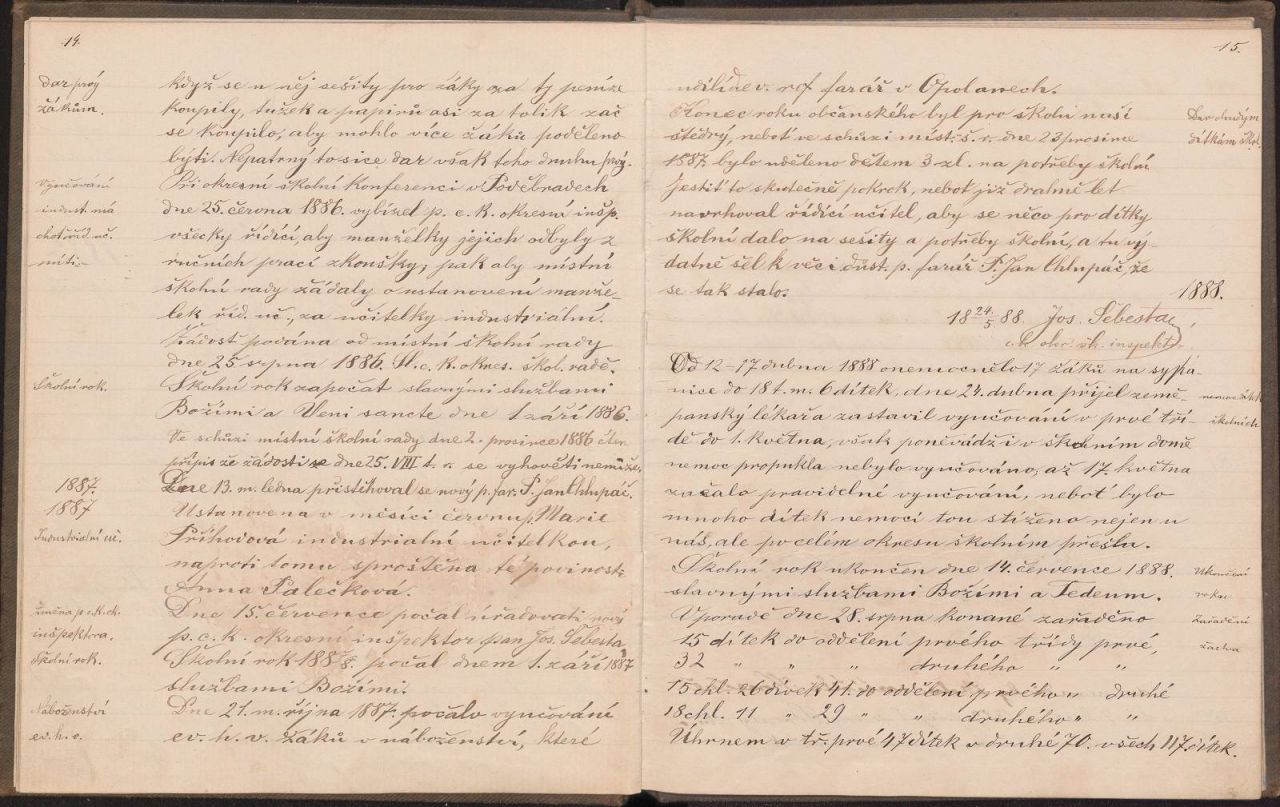 14.
Dar prý
žákům.
když se u něj sešity pro žáky za ty peníze
koupily, tužek a papíru asi za tolik zač
se koupilo, aby mohlo více žáků poděleno
býti. Nepatrný to sice dar však toho druhu prý.
Vyučování
indust. má
choť říd. uč.
míti.
Při okresní školní konferenci v Poděbradech
dne 25. června 1886. vybízel p. c. k. okresní inšp.
všecky řídící, aby manželky jejich odbyly z
ručních prací zkoušky, pak aby místní
školní rady žádaly o ustanovení manže-
lek říd. uč., za učitelky industriální.
Žádost podána od místní školní rady
dne 25 srpna 1886. Sl. c. k. okres. škol. radě.
Školní rok.
Školní rok započat slavnými službami
Božími a Veni sancte dne 1 září 1886.
Ve schůzi místní školní rady dne 2. prosince 1886 čten
přípis že žádosti ze dne 25. VIII t. r. se vyhověti nemůže.
1887.
Dne 13. m. ledna přistěhoval se nový p. far. P. Jan Chlupáč.
1887
Ustanovena v měsíci červnu p. Marie
Industrialní uč.
Příhodová industrialní učitelkou,
naproti tomu sproštěna té povinosti
Anna Palečkova.
změna p. c. k. ok.
inšpektora.
Dne 15. července počal úřadovati nový
p. c. k. okresní inšpektor pan Jos. Šebesta
Školní rok.
Školní rok 1887/8. počal dnem 1. září 1887
službami Božími.
Náboženství
ev. h. v.
Dne 21. m. října 1887. počalo vyučování
ev. h. v. žáků v náboženství, které
15.
udílí dv. rf. farář v Opolanech.
Dar chudým
dítkám škol.
Konec roku občanského byl pro školu naší
štědrý, neboť ve schůzi míst. š. r. dne 23 prosince
1887. bylo uděleno dětem 3 zl. na potřeby školní
Jestiť to skutečně pokrok, neboť již drahně let
navrhoval řídící učitel, aby se něco pro dítky
školní dalo na sešity a potřeby školní, a tu vý-
datně šel k věci důst. p. farář P. Jan Chlupáč, že
se tak stalo.
1888.
18 24/5 88. Jos. Šebesta
c. k. okr. šk. inspekt.
Od 12–17 dubna 1888 onemocnělo 17 žáků na sypa-
nice do 18 t. m. 6 dítek, dne 24. dubna přijel země-
nemoc dítek
školních
panský lékař a zastavil vyučování v prvé tří-
dě do 1. května, však poněvádž i v školním domě
nemoc propukla nebylo vyučováno, až 17. května
začalo pravidelné vyučování, neboť bylo
mnoho dítek nemocí tou stíženo nejen u
nás, ale po celém okresu školním přešla.
Ukončení
roku
Školní rok ukončen dne 14. července 1888.
slavnými službami Božími a Tedeum.
zařadění
žactva
V poradě dne 28. srpna konané zařaděno
15 dítek do oddělení prvého třídy prvé,
32 " " " druhého " "
15 chl. 26 dívek 41. do oddělení prvého " druhé
18 chl. 11 " 29 " " druhého " "
Úhrnem v tř. prvé 47 dítek v druhé 70. všech 117. dítek.